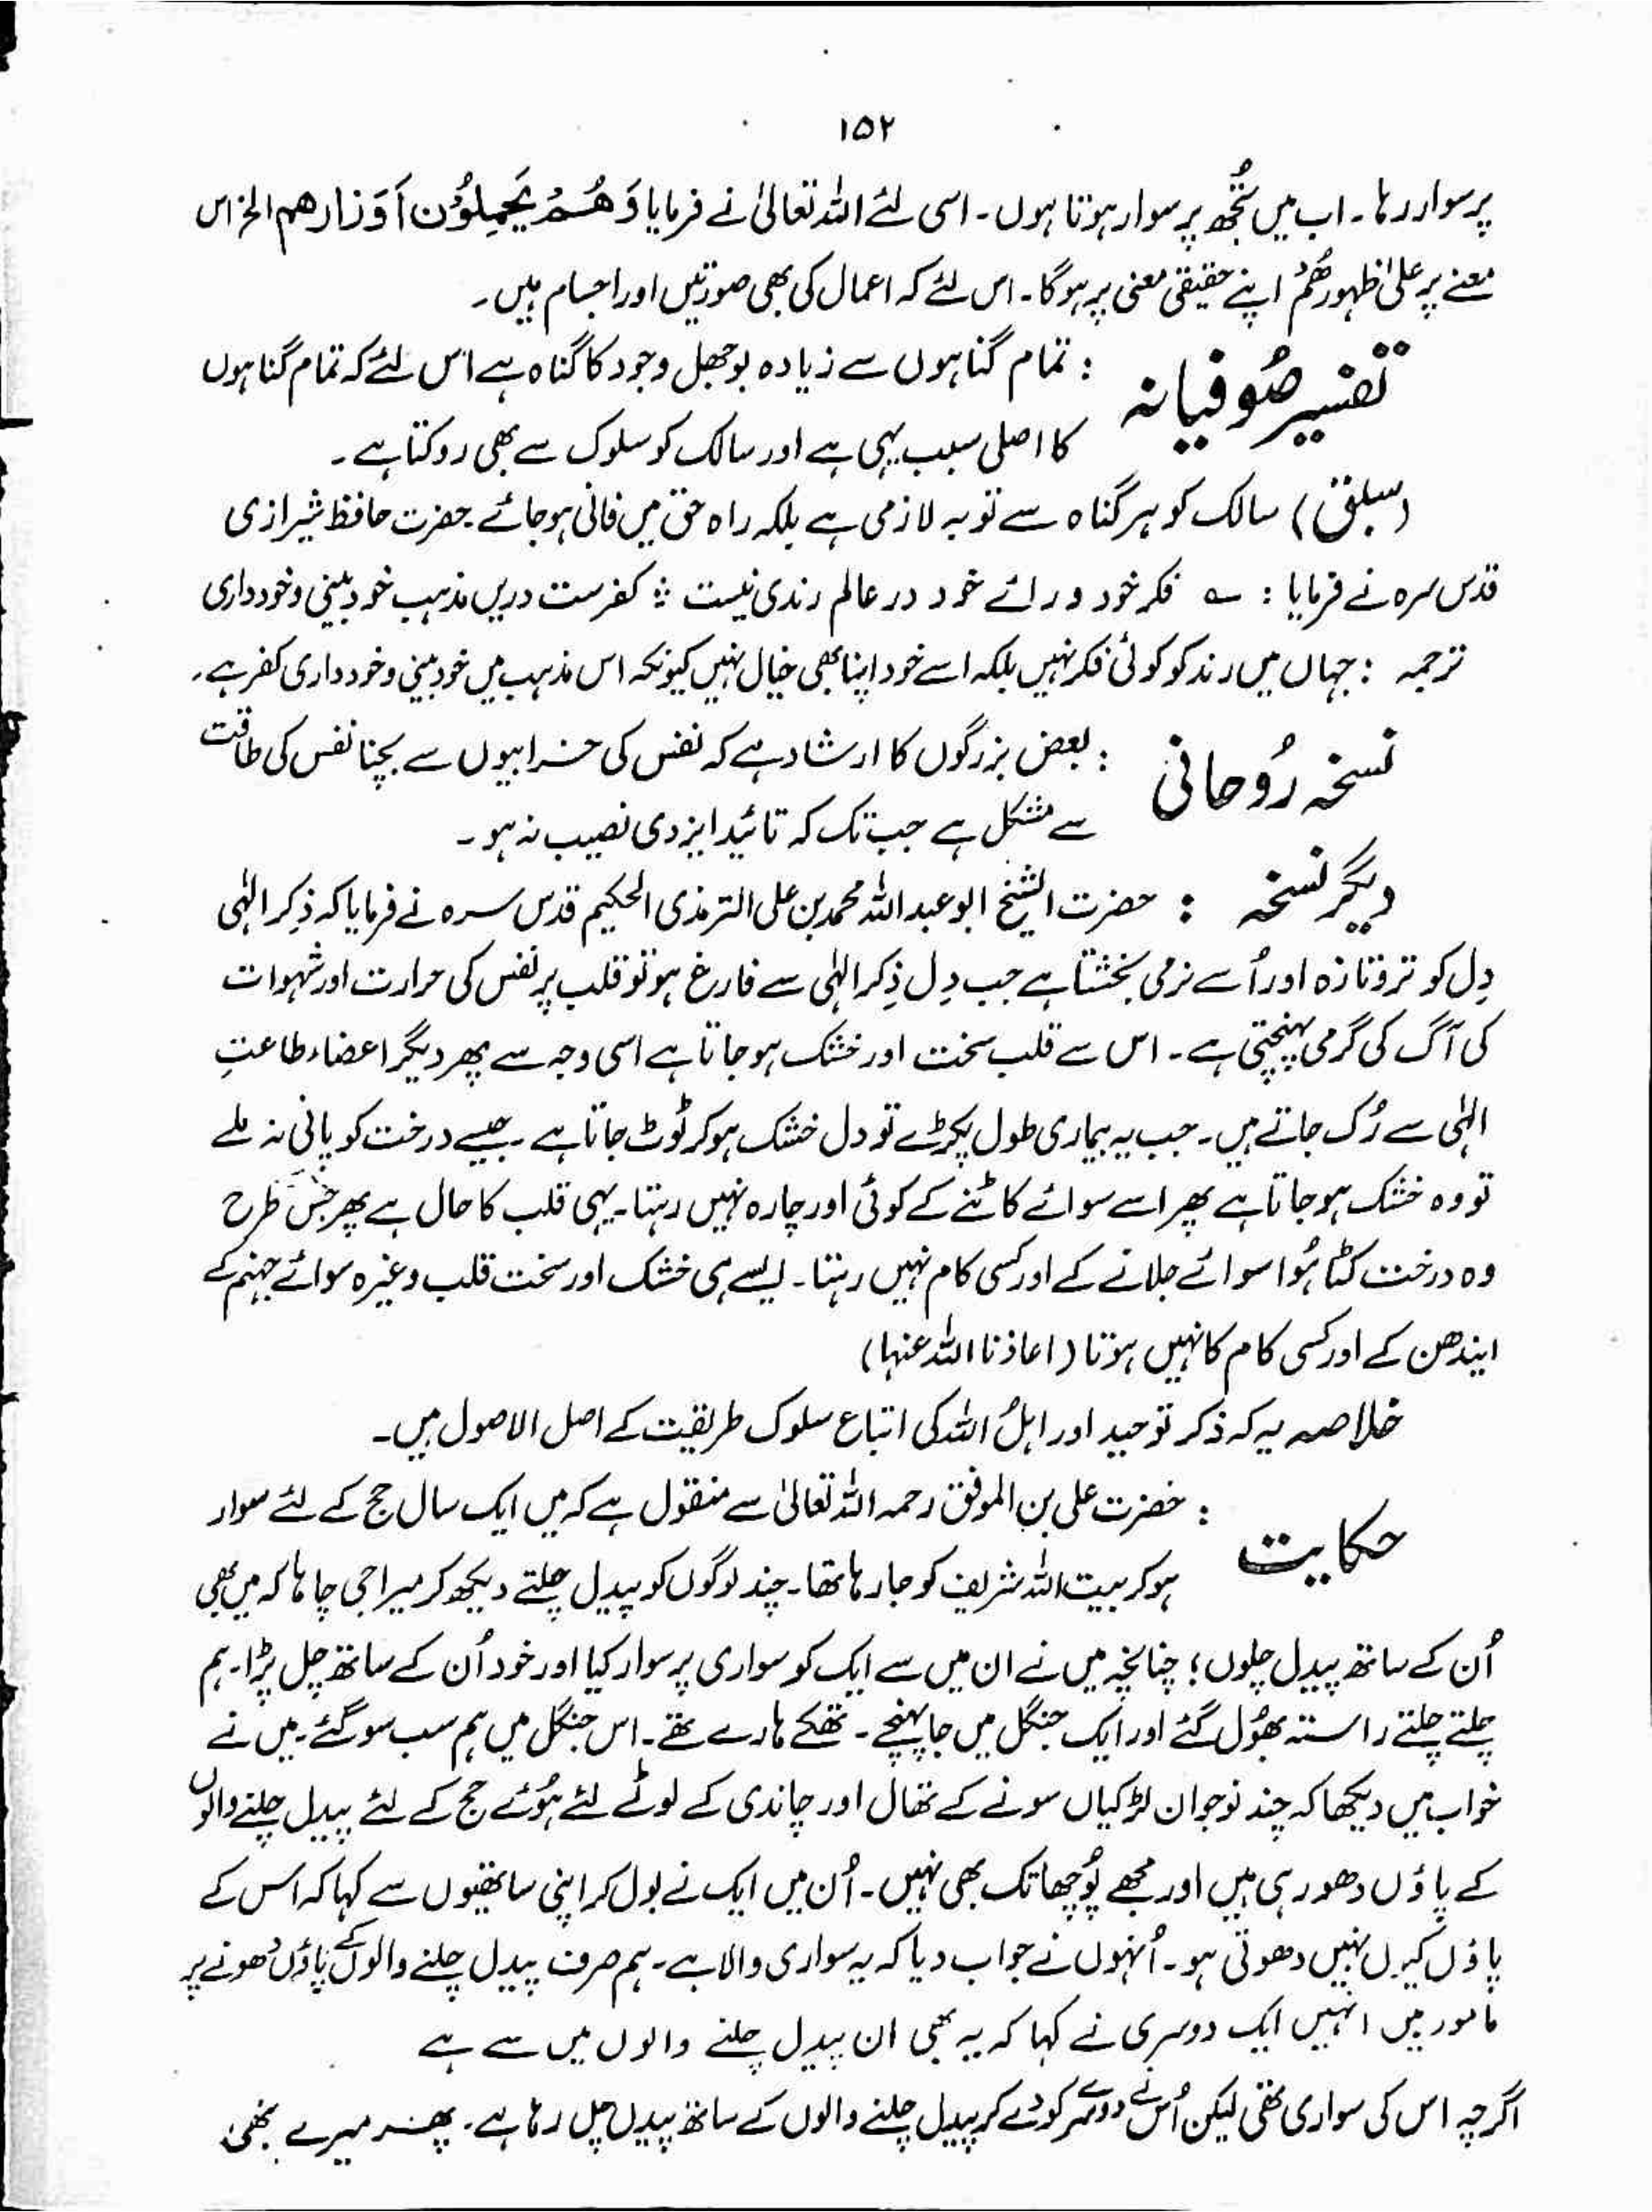 ۱۵۲
پر سوار رہا۔ اب میں تُجھ پر سوار ہوتا ہوں۔ اسی لئے اللہ تعالیٰ نے فرمایا وَ هُمْ يَحْمِلُوْنَ اَوْزَارهم الخ اس
معنے پر علیٰ ظہورھُمْ اپنے حقیقی معنی پر ہوگا۔ اس لئے کہ اعمال کی بھی صورتیں اور اجسام ہیں۔
تفسیر صُوفیانہ : تمام گناہوں سے زیادہ بوجھل وجود کا گناہ ہے اس لئے کہ تمام گناہوں
کا اصلی سبب یہی ہے اور سالک کو سلوک سے بھی روکتا ہے۔
(سبق) سالک کو ہر گناہ سے توبہ لازمی ہے بلکہ راہ حق میں فانی ہوجائے حضرت حافظ شیرازی
قدس سرہ نے فرمایا : ؎ فکر خود و رائے خود در عالم رندی نیست ؞ کفرست دریں مذہب خود بینی و خودداری
ترجمہ : جہاں میں رند کو کوئی فکر نہیں بلکہ اسے خود اپنا بھی خیال نہیں کیونکہ اس مذہب میں خود بینی و خودداری کفر ہے۔
نسخہ رُوحانی : بعض بزرگوں کا ارشاد ہے کہ نفس کی خرابیوں سے بچنا نفس کی طاقت
سے مشکل ہے جب تک کہ تائید ایزدی نصیب نہ ہو۔
دیگر نسخہ : حضرت الشیخ ابو عبد اللہ محمد بن علی الترمذی الحکیم قدس سرہ نے فرمایا کہ ذِکر الٰہی
دِل کو تروتازہ اور اُسے نرمی بخشتا ہے جب دِل ذِکر الٰہی سے فارغ ہو تو قلب پر نفس کی حرارت اور شہوات
کی آگ کی گرمی پہنچتی ہے۔ اس سے قلب سخت اور خشک ہو جاتا ہے اسی وجہ سے پھر دیگر اعضاء طاعتِ
الٰہی سے رُک جاتے ہیں۔ جب یہ بیماری طول پکڑے تو دل خشک ہو کر ٹوٹ جاتا ہے۔ جیسے درخت کو پانی نہ ملے
تو وہ خشک ہو جاتا ہے پھر اسے سوائے کاٹنے کے کوئی اور چارہ نہیں رہتا۔ یہی قلب کا حال ہے پھر جس طرح
وہ درخت کٹا ہُوا سوائے جلانے کے اور کسی کام نہیں رہتا۔ ایسے ہی خشک اور سخت قلب وغیرہ سوائے جہنم کے
ایندھن کے اور کسی کام کا نہیں ہوتا (اعاذنا اللہ عنہا)
خلاصہ یہ کہ ذکر توحید اور اہلُ اللہ کی اتباع سلوک طریقت کے اصل الاصول ہیں۔
حکایت : حضرت علی بن الموفق رحمہ اللہ تعالیٰ سے منقول ہے کہ میں ایک سال حج کے لئے سوار
ہو کر بیت اللہ شریف کو جا رہا تھا۔ چند لوگوں کو پیدل چلتے دیکھ کر میرا جی چاہا کہ میں بھی
اُن کے ساتھ پیدل چلوں؛ چنانچہ میں نے ان میں سے ایک کو سواری پر سوار کیا اور خود اُن کے ساتھ چل پڑا۔ ہم
چلتے چلتے راستہ بھُول گئے اور ایک جنگل میں جا پہنچے۔ تھکے ہارے تھے۔ اس جنگل میں ہم سب سو گئے۔ میں نے
خواب میں دیکھا کہ چند نوجوان لڑکیاں سونے کے تھال اور چاندی کے لوٹے لئے ہُوئے حج کے لئے پیدل چلنے والوں
کے پاؤں دھو رہی ہیں اور مجھے پُوچھا تک بھی نہیں۔ اُن میں ایک نے بول کر اپنی ساتھیوں سے کہا کہ اس کے
پاؤں کیوں نہیں دھوتی ہو۔ اُنہوں نے جواب دیا کہ یہ سواری والا ہے۔ ہم صرف پیدل چلنے والوں کے پاؤں دھونے پر
مامور ہیں انہیں ایک دوسری نے کہا کہ یہ بھی ان پیدل چلنے والوں میں سے ہے
اگرچہ اس کی سواری تھی لیکن اُس نے دوسرے کو دے کر پیدل چلنے والوں کے ساتھ پیدل چل رہا ہے۔ پھر میرے بھی